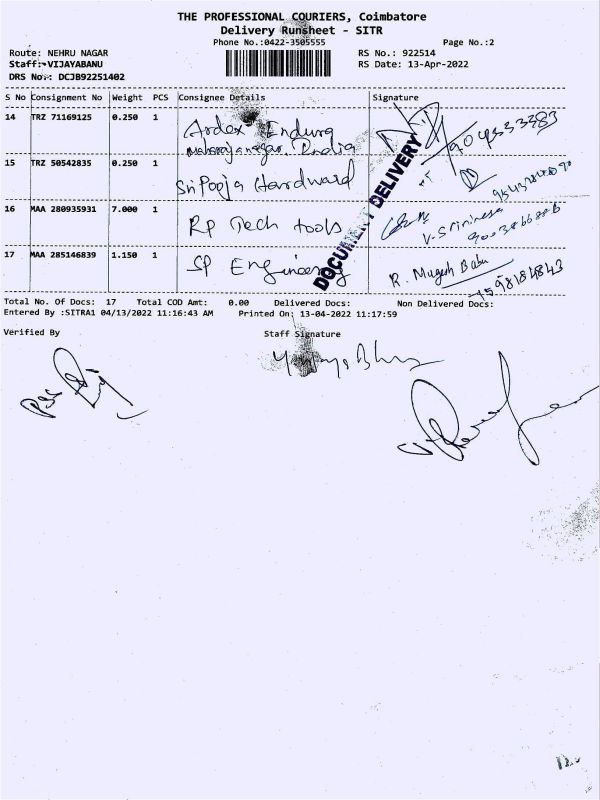 THE PROFESSIONAL COURIERS, Coimbatore
Delivery Runsheet - SITR
Phone No.:0422-3505555 Page No.:2
Route: NEHRU NAGAR RS No.: 922514
Staff:VIJAYABANU RS Date: 13-Apr-2022
DRS No.: DCJB92251402
S No Consignment No Weight PCS Consignee Details Signature
14 TRZ 71169125 0.250 1 Ardex Endura
Maharajanagar, India
15 TRZ 50542835 0.250 1 Sri Pooja Hardward
16 MAA 280935931 7.000 1 Rp Tech tools
V. Srinivasa
17 MAA 285146839 1.150 1 SP Engineering R. Mugesh Babu
DOCUMENT DELIVERY
Total No. Of Docs: 17 Total COD Amt: 0.00 Delivered Docs: Non Delivered Docs:
Entered By :SITRA1 04/13/2022 11:16:43 AM Printed On: 13-04-2022 11:17:59
Verified By Staff Signature